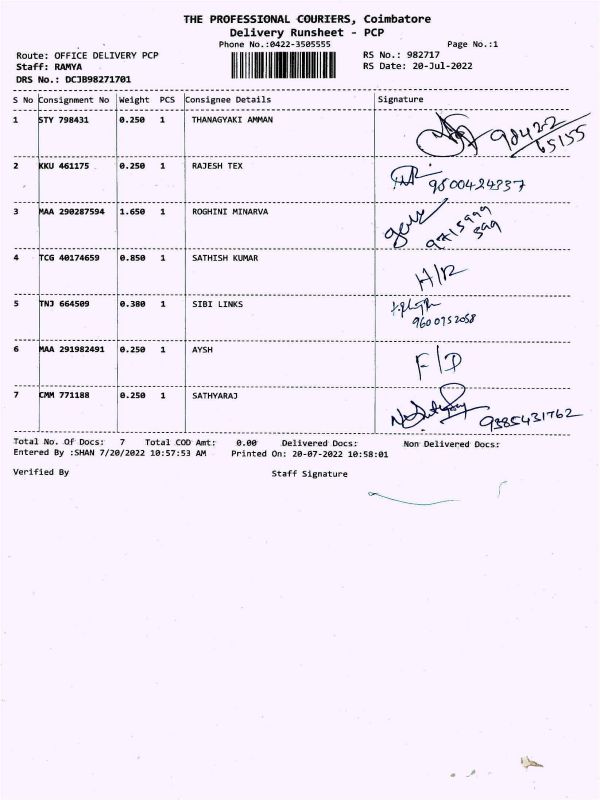 THE PROFESSIONAL COURIERS, Coimbatore
Delivery Runsheet - PCP
Phone No.:0422-3505555 Page No.:1
Route: OFFICE DELIVERY PCP RS No.: 982717
Staff: RAMYA RS Date: 20-Jul-2022
DRS No.: DCJB98271701
S No Consignment No Weight PCS Consignee Details Signature
1 STY 798431 0.250 1 THANAGYAKI AMMAN
98422
65155
2 KKU 461175 0.250 1 RAJESH TEX
9500424337
3 MAA 290287594 1.650 1 ROGHINI MINARVA
4 TCG 40174659 0.850 1 SATHISH KUMAR
H/R
5 TNJ 664509 0.380 1 SIBI LINKS
9600752058
6 MAA 291982491 0.250 1 AYSH
F/D
7 CMM 771188 0.250 1 SATHYARAJ
9385431762
Total No. Of Docs: 7 Total COD Amt: 0.00 Delivered Docs: Non Delivered Docs:
Entered By :SHAN 7/20/2022 10:57:53 AM Printed On: 20-07-2022 10:58:01
Verified By Staff Signature